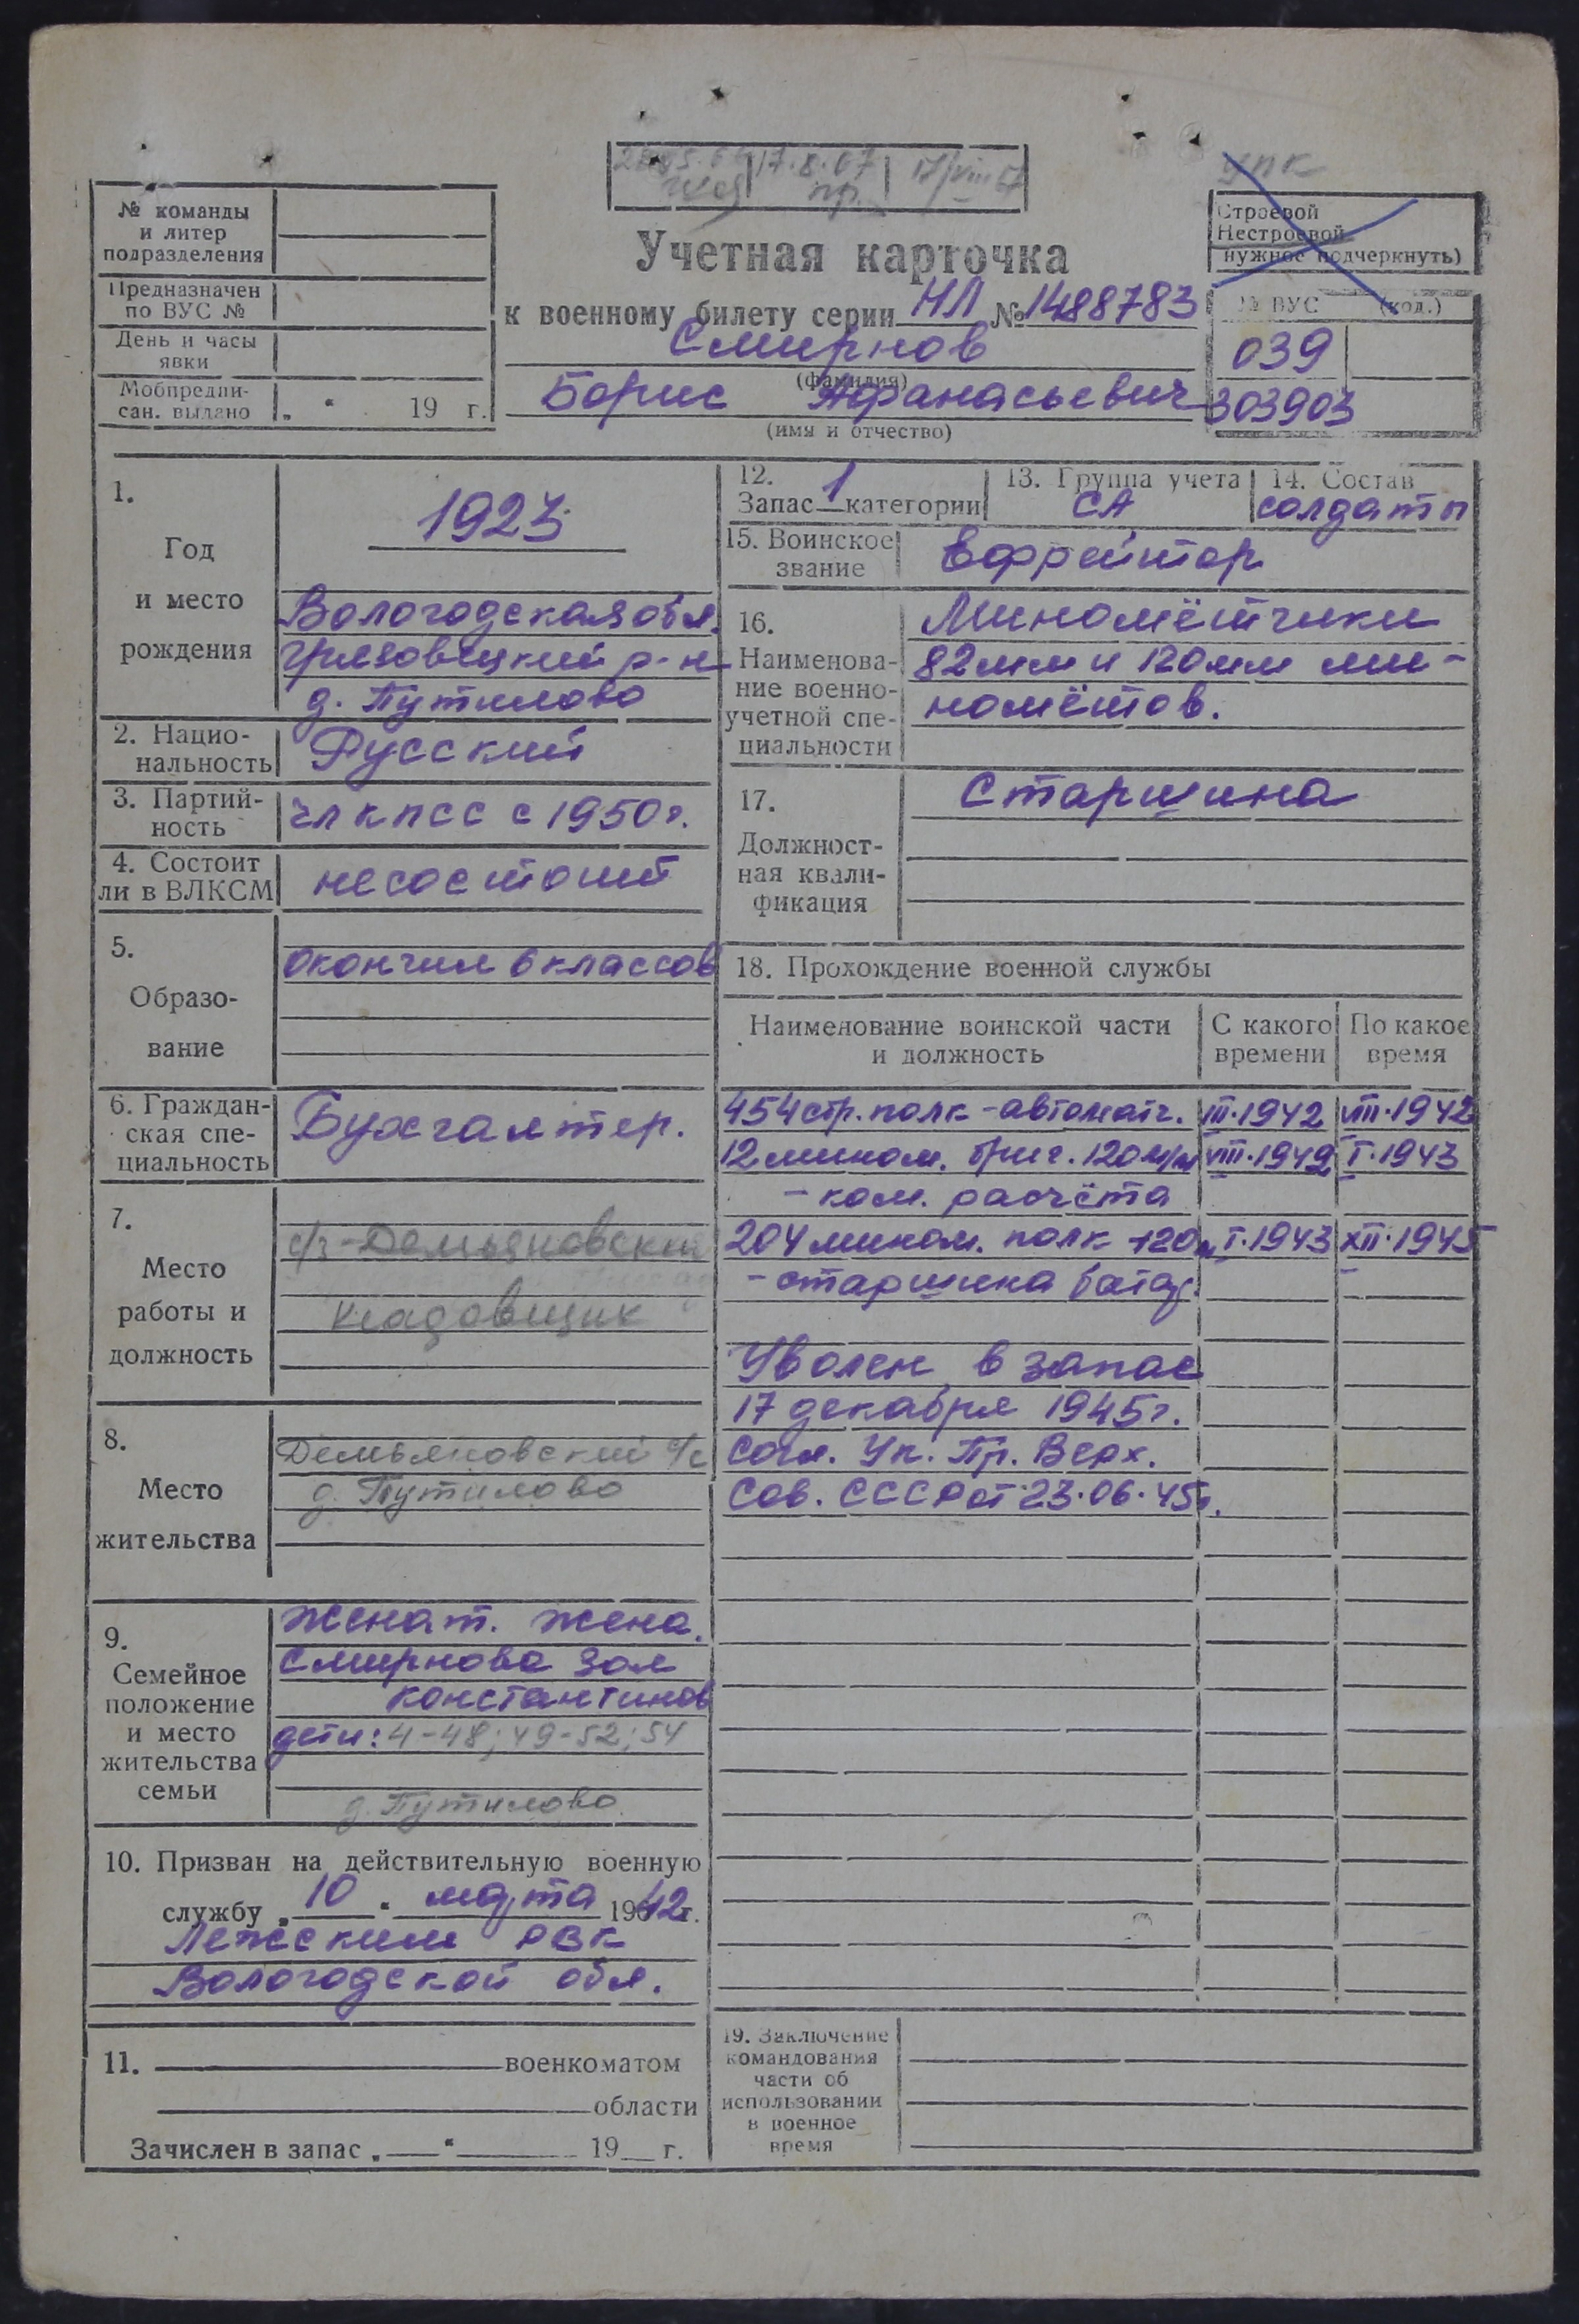 17.8.67
17/VIII 67
упк
№ команды
и литер
подразделения
Предназначен
по ВУС №
День и часы
явки
Мобпредпи-
сан. выдано „ “ 19 г.
Учетная карточка
к военному билету серии НЛ № 1488783
Смирнов
(фамилия)
Борис Афанасьевич
(имя и отчество)
Строевой
Нестроевой
нужное подчеркнуть)
№ ВУС (код.)
039
303903
1.
Год
и место
рождения
1923
Вологодская обл.
Грязовецкий р-н
д. Путилово
2. Нацио-
нальность
Русский
3. Партий-
ность
чл КПСС с 1950г.
4. Состоит
ли в ВЛКСМ
не состоит
5.
Образо-
вание
окончил 6 классов
6. Граждан-
ская спе-
циальность
Бухгалтер.
7.
Место
работы и
должность
с/з-Демьяновский
кладовщик
8.
Место
жительства
Демьяновский с/с
д. Путилово
9.
Семейное
положение
и место
жительства
семьи
Женат. жена.
Смирнова Зоя
Константинов
дети: 4-48; 49-52; 54
д. Путилово
10. Призван на действительную военную
службу „10“ марта 1942г.
Лежским РВК
Вологодской обл.
11. военкоматом
области
Зачислен в запас „ “ 19 г.
12.
Запас 1 категории
13. Группа учета
СА
14. Состав
солдаты
15. Воинское
звание
Ефрейтор
16.
Наименова-
ние военно-
учетной спе-
циальности
Миномётчики
82мм и 120мм ми-
номётов.
17.
Должност-
ная квали-
фикация
Старшина
18. Прохождение военной службы
Наименование воинской части
и должность
С какого
времени
По какое
время
454 стр. полк - автоматч. III.1942 VIII.1942
12 мином. бриг. 120 м/м VIII.1942 I.1943
- ком. расчёта
204 мином. полк-120м I.1943 XII.1945
- старшина батар.
Уволен в запас
17 декабря 1945г.
Согл. Ук. Пр. Верх.
Сов. СССР от 23.06.45г.
19. Заключение
командования
части об
использовании
в военное
время